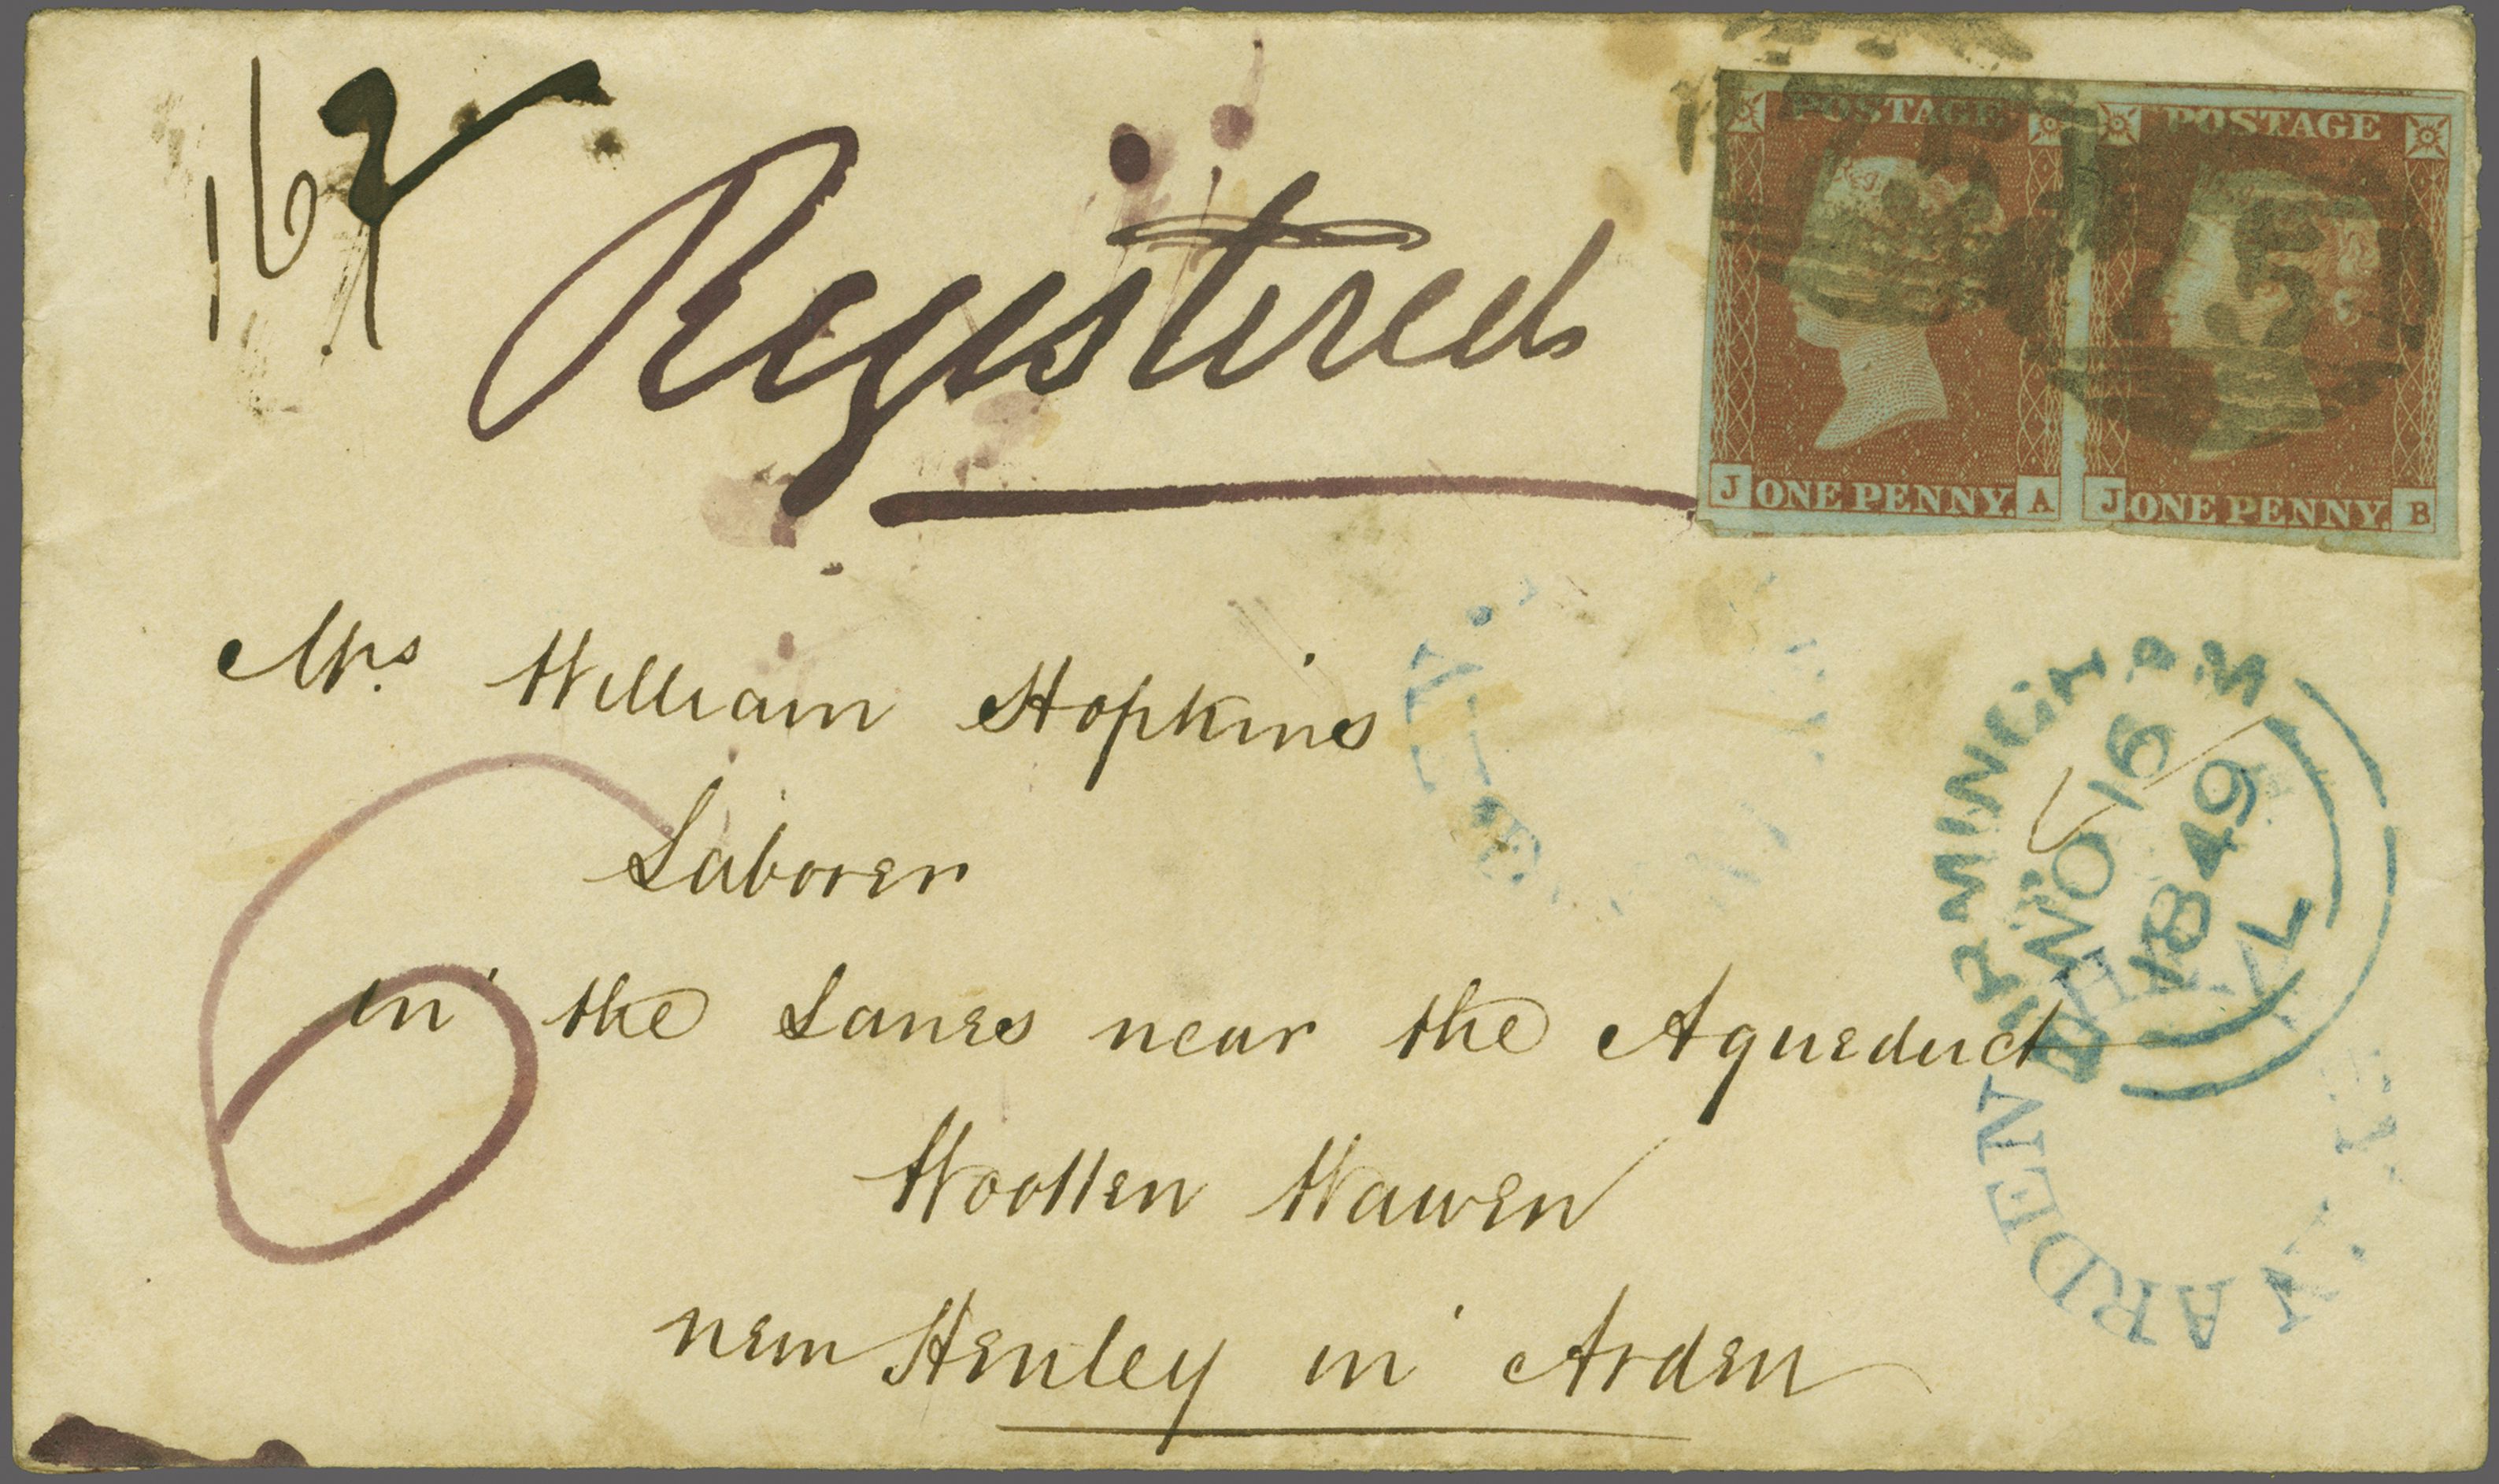 162
Registered
POSTAGE POSTAGE
J ONE PENNY. A J ONE PENNY. B
Mrs William Hopkins
Laborer
in the Lanes near the Aqueduct
Wootten Wawen
near Henley in Arden
6
BIRMINGHAM
NO 16
1849
L
HENLEY
ARDEN